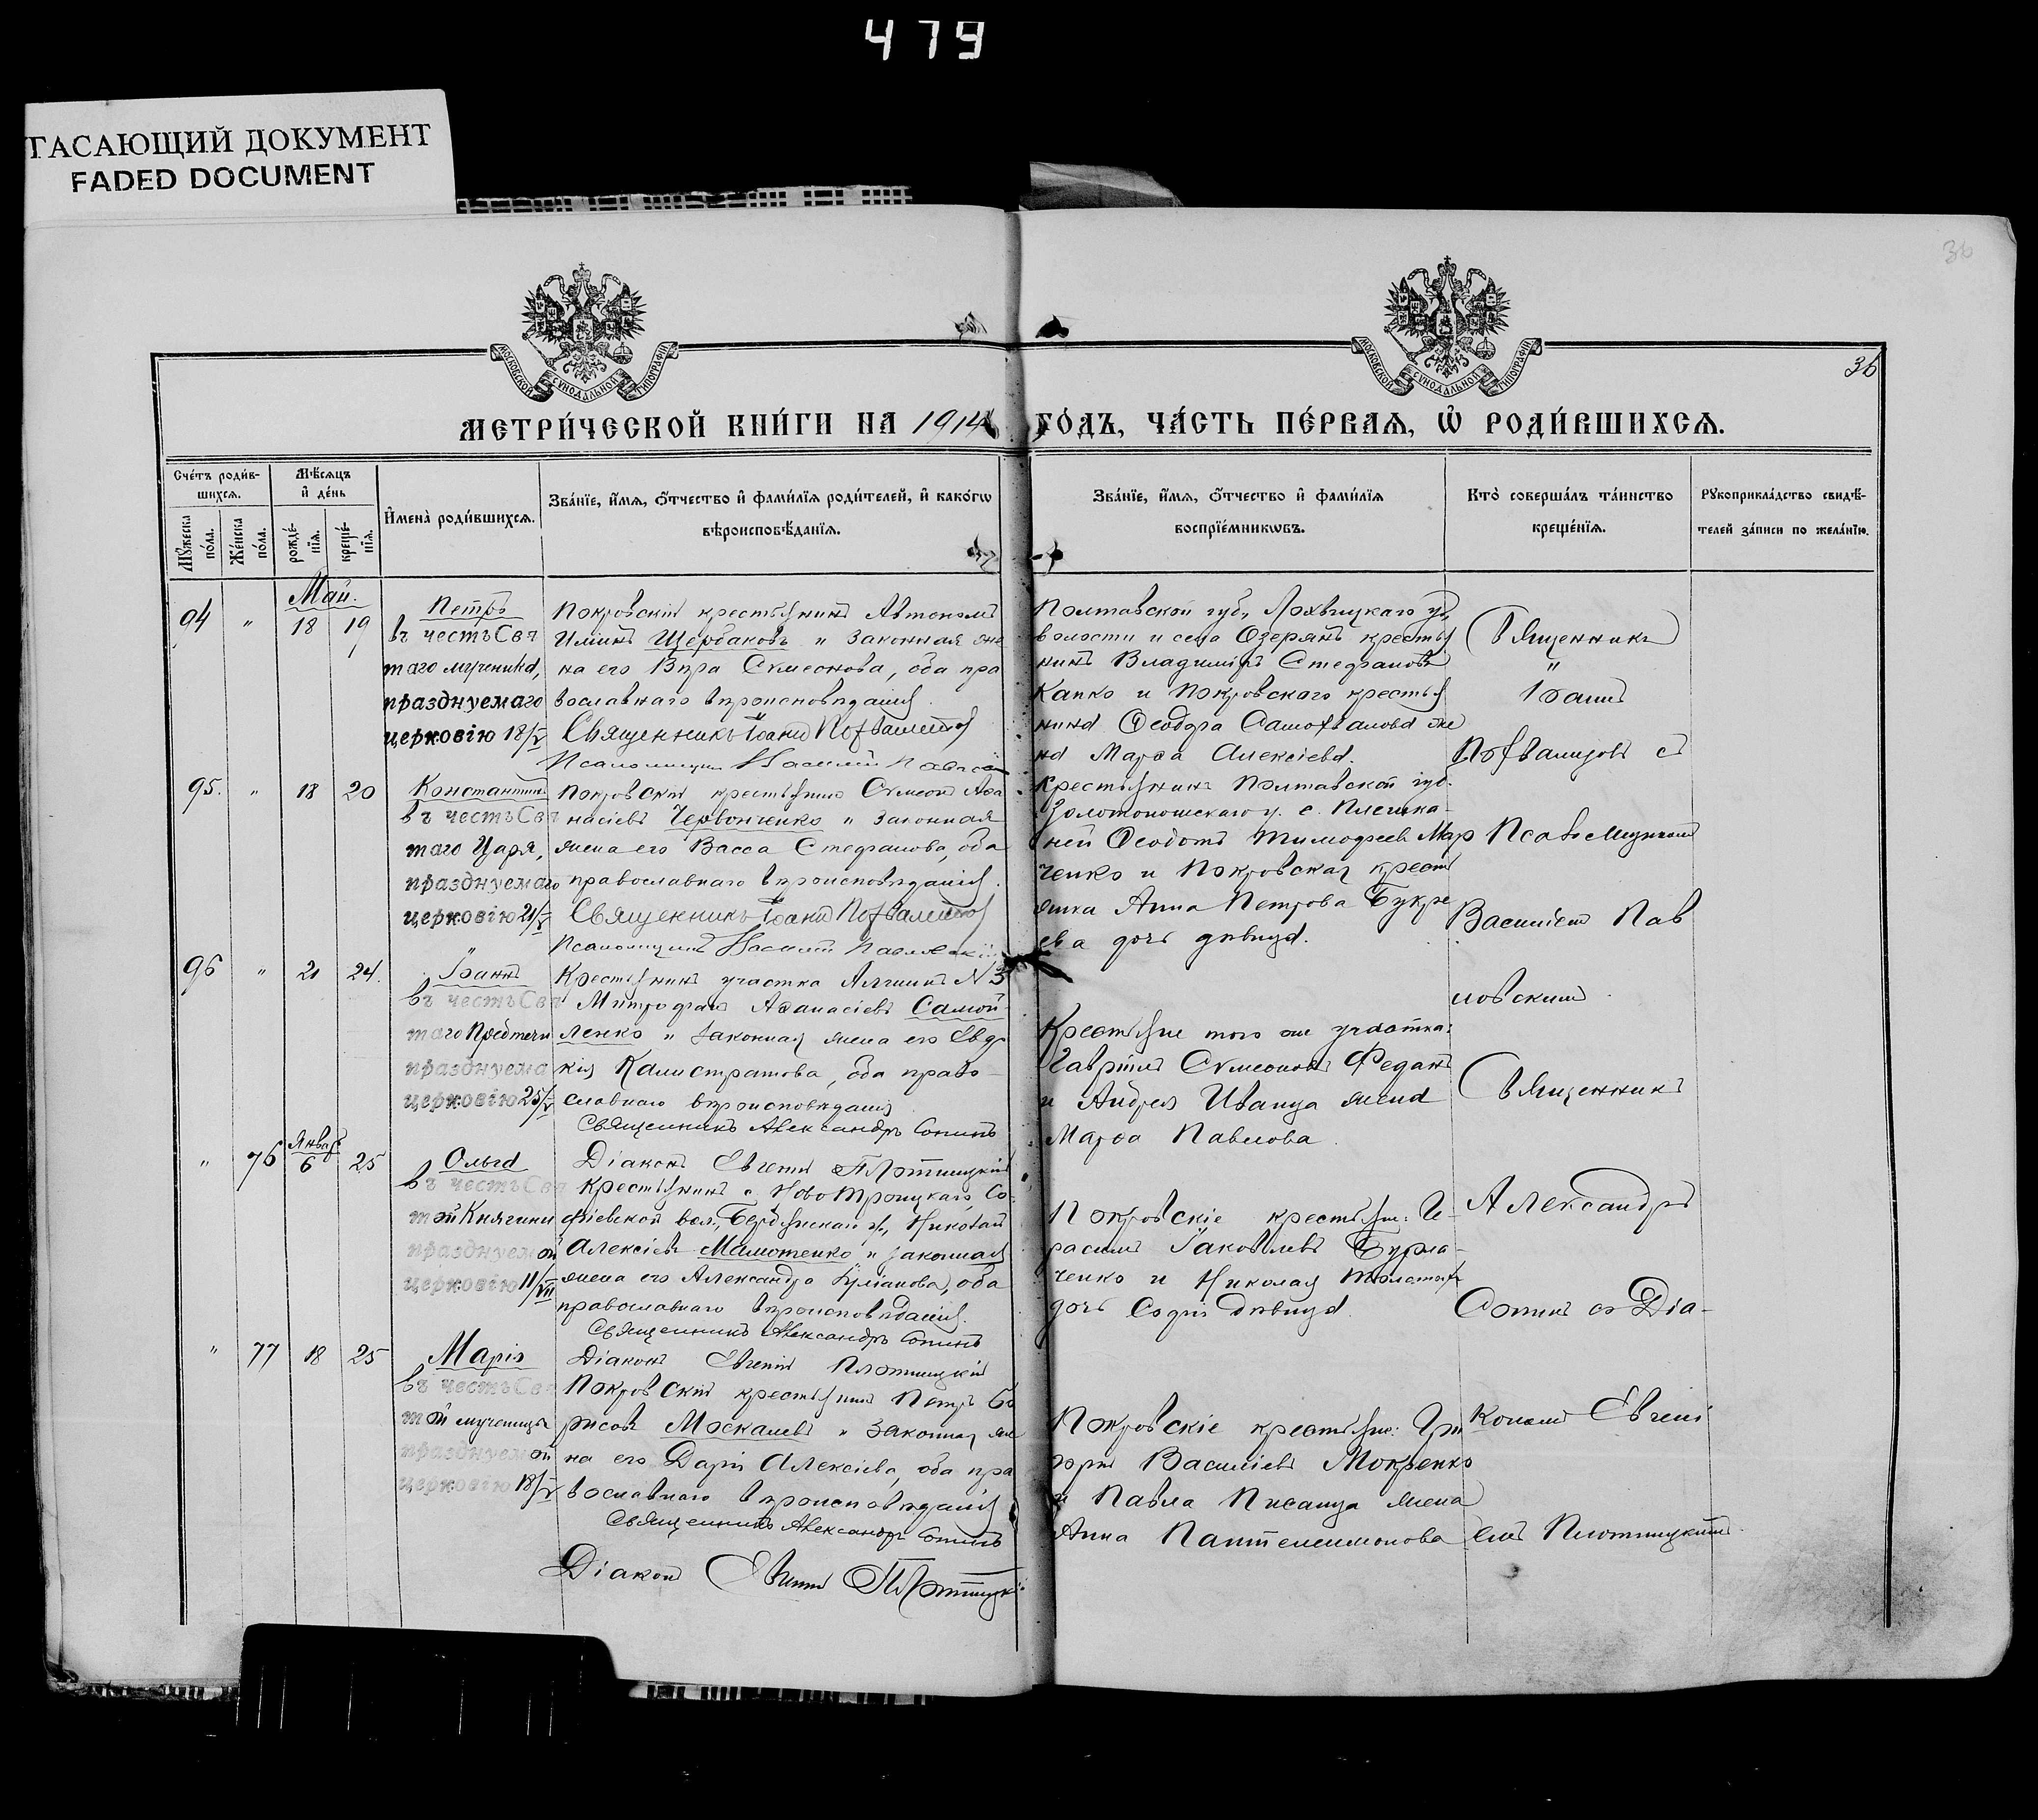 479
ГАСАЮЩИЙ ДОКУМЕНТ
FADED DOCUMENT
36
МОСКОВСКОЙ СѴНОДАЛЬНОЙ ТИПОГРАФІИ
МОСКОВСКОЙ СѴНОДАЛЬНОЙ ТИПОГРАФІИ
36
МЕТРИ́ЧЕСКОЙ КНИ́ГИ НА 1914 ГО́ДЪ, ЧА́СТЬ ПЕ́РВАѦ, Ѡ҆ РОДИ́ВШИХСѦ.
Сче́тъ роди́в-
шихсѧ.
Мꙋ́жеска по́ла.
Же́нска по́ла.
Мѣ́сѧцъ
и҆ де́нь
рожде́-
нїѧ.
креще́-
нїѧ.
И҆мена̀ роди́вшихсѧ.
Зва́нїе, и҆́мѧ, ѻ҆́тчество и҆ фами́лїѧ роди́телей, и҆ како́гѡ
вѣроисповѣ́данїѧ.
Зва́нїе, и҆́мѧ, ѻ҆́тчество и҆ фами́лїѧ
воспрїе́мникѡвъ.
Кто̀ соверша́лъ та́инство
креще́нїѧ.
Рꙋкоприкла́дство свидѣ́-
телей за́писи по жела́нїю.
Май.
94 " 18 19
Петръ
въ честь Свя
таго мученика,
празднуемаго
церковію 18/V
Покровскій крестьянинъ Автономъ
Иліинъ Щербаковъ и законная же
на его Вѣра Сѵмеонова, оба пра
вославнаго вѣроисповѣданія.
Священникъ Іоаннъ
Псаломщикъ Василій
Полтавской губ., Лохвицкаго у.,
волости и села Озерянъ крестья
нинъ Владиміръ Стефановъ
Капко и Покровскаго крестья
нина Ѳеодора Самохвалова же
на Марѳа Алексіева.
Священникъ
"
Іоаннъ
95. " 18 20
Константинъ
въ честь Свя
таго Царя,
празднуемаго
церковію 21/V
Покровскій крестьянинъ Сѵмеонъ Аѳа
насіевъ Червонченко и законная
жена его Васса Стефанова, оба
православнаго вѣроисповѣданія.
Священникъ Іоаннъ
Псаломщикъ Василій Павловскій
Крестьянинъ Полтавской губ.
Золотоношскаго у. с.
ней Ѳеодотъ Тимофеевъ Мар
ченко и Покровская крест
янка Анна Петрова Букре
ева дочь дѣвица.
Псаломщикомъ
Василіемъ Пав
ловскимъ.
96 " 21 24.
Іоаннъ
въ честь Свя
таго Предтечи
празднуема
церковію 25/V
Крестьянинъ участка Алгинъ N 3
Митрофанъ Аѳанасіевъ Самой-
ленко и законная жена его Евдо
кія Калистратова, оба право-
славнаго вѣроисповѣданія
Священникъ Александръ Сопинъ
Діаконъ Евгеній Плотницкій
Крестьяне того же участка:
Гавріилъ Сѵмеоновъ Феданъ
и Андрея Иванца жена
Марѳа Павлова.
Священникъ
Александръ
Сопинъ съ Діа-
Январь
" 76 6 25
Ольга
въ честь Свя
той Княгини
празднуемой
церковію 11/VII
Крестьянинъ с. Ново Троицкаго, Со-
фіевской вол., Бердянскаго у., Николай
Алексіевъ Малютенко и законная
жена его Александра Іуліанова, оба
православнаго вѣроисповѣданія.
Священникъ Александръ Сопинъ
Діаконъ Евгеній Плотницкій
Покровскіе крестьяне: Ге-
расимъ Іаковлевъ Бурла-
ченко и Николая
дочь Софія дѣвица.
" 77 18 25
Марія
въ честь Свя
той мученицы
празднуемой
церковію 18/V
Покровскій крестьянинъ Петръ Бо
рисовъ Москалевъ и законная же
на его Дарія Алексіева, оба пра
вославнаго вѣроисповѣданія
Священникъ Александръ Сопинъ
Діаконъ Евгеній Плотницкій
Покровскіе крестьяне: Гри
горій Василіевъ Мокренко
и Павла Писанца жена
Анна Пантелеимонова
кономъ Евгені
емъ Плотницкимъ.